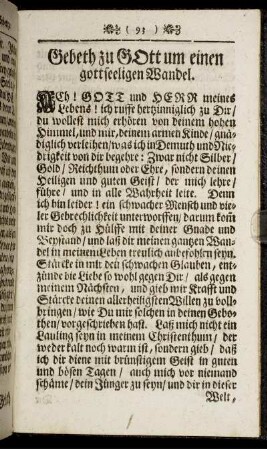 ( 93 )
Gebeth zu GOtt um einen
gottseeligen Wandel.
ACh! GOTT und HERR meines
Lebens! ich ruffe hertzinniglich zu Dir/
du wollest mich erhören von deinem hohen
Himmel, und mir, deinem armen Kinde/ gnä-
diglich verleihen/ was ich in Demuth und Nie-
drigkeit von dir begehre: Zwar nicht Silber/
Gold/ Reichthum oder Ehre, sondern deinen
Heiligen und guten Geist/ der mich lehre/
führe/ und in alle Wahrheit leite. Denn
ich bin leider! ein schwacher Mensch und vie-
ler Gebrechlichkeit unterworffen/ darum kom̄
mir doch zu Hülffe mit deiner Gnade und
Beystand/ und laß dir meinen gantzen Wan-
del in meinem Leben treulich anbefohlen seyn.
Stärcke in mir den schwachen Glauben, ent-
zünde die Liebe so wohl gegen Dir/ als gegen
meinem Nächsten, und gieb mir Krafft und
Stärcke deinen allerheiligsten Willen zu voll-
bringen/ wie Du mir solchen in deinen Gebo-
then/ vorgeschrieben hast. Laß mich nicht ein
Lauling seyn in meinem Christenthum/ der
weder kalt noch warm ist, sondern gieb/ daß
ich dir diene mit brünstigem Geist in guten
und bösen Tagen/ auch mich vor niemand
schäme/ dein Jünger zu seyn/ und dir in dieser
Welt,